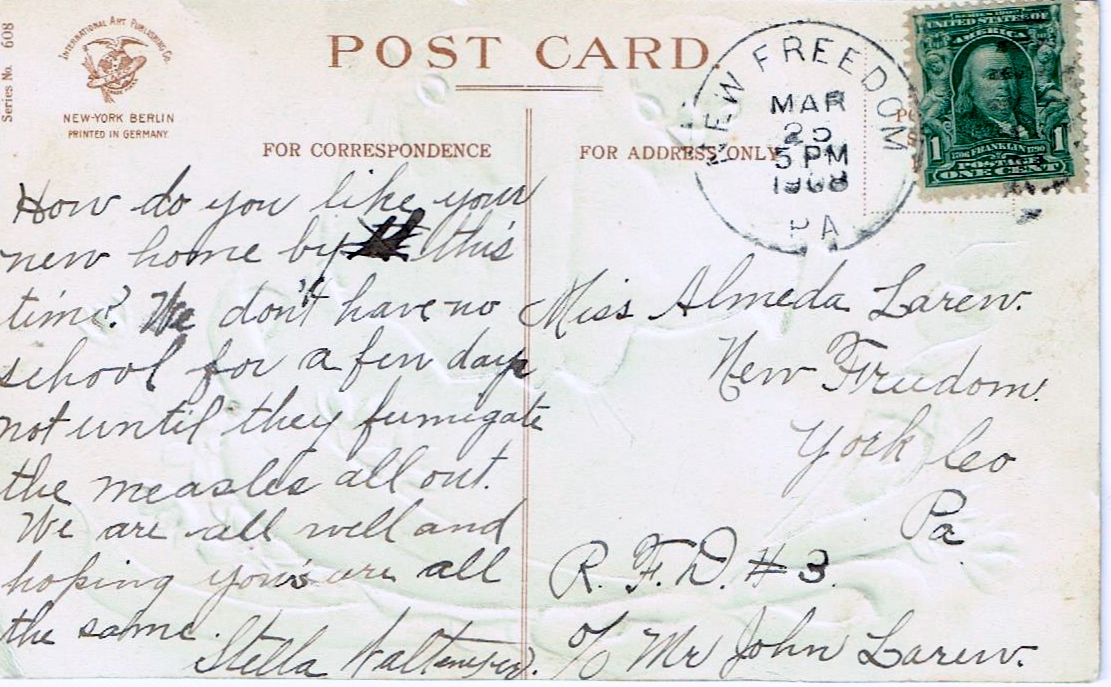 Series No. 608
INTERNATIONAL ART PUBLISHING Co.
TRADE MARK
NEW-YORK BERLIN
PRINTED IN GERMANY.
POST CARD.
FOR CORRESPONDENCE
FOR ADDRESS ONLY
NEW FREEDOM
MAR
25
5 PM
1908
PA
SERIES 1902
UNITED STATES OF
AMERICA
1 1706 FRANKLIN 1790 1
POSTAGE
ONE CENT
How do you like your
new home by this
time? We don't have no
school for a few days
not until they fumigate
the measles all out.
We are all well and
hoping you's are all
the same.
Stella
Miss Almeda Larew.
New Freedom.
York Co
Pa
R. F. D. # 3.
c/o Mr John Larew.